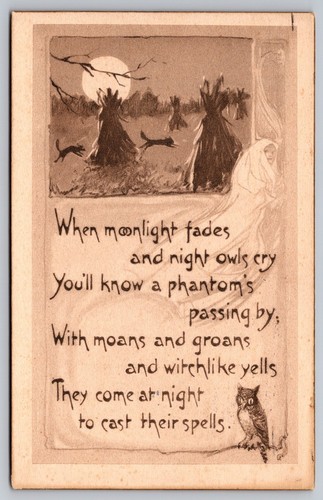 When moonlight fades
and night owls cry
You'll know a phantom's
passing by;
With moans and groans
and witchlike yells
They come at night
to cast their spells.